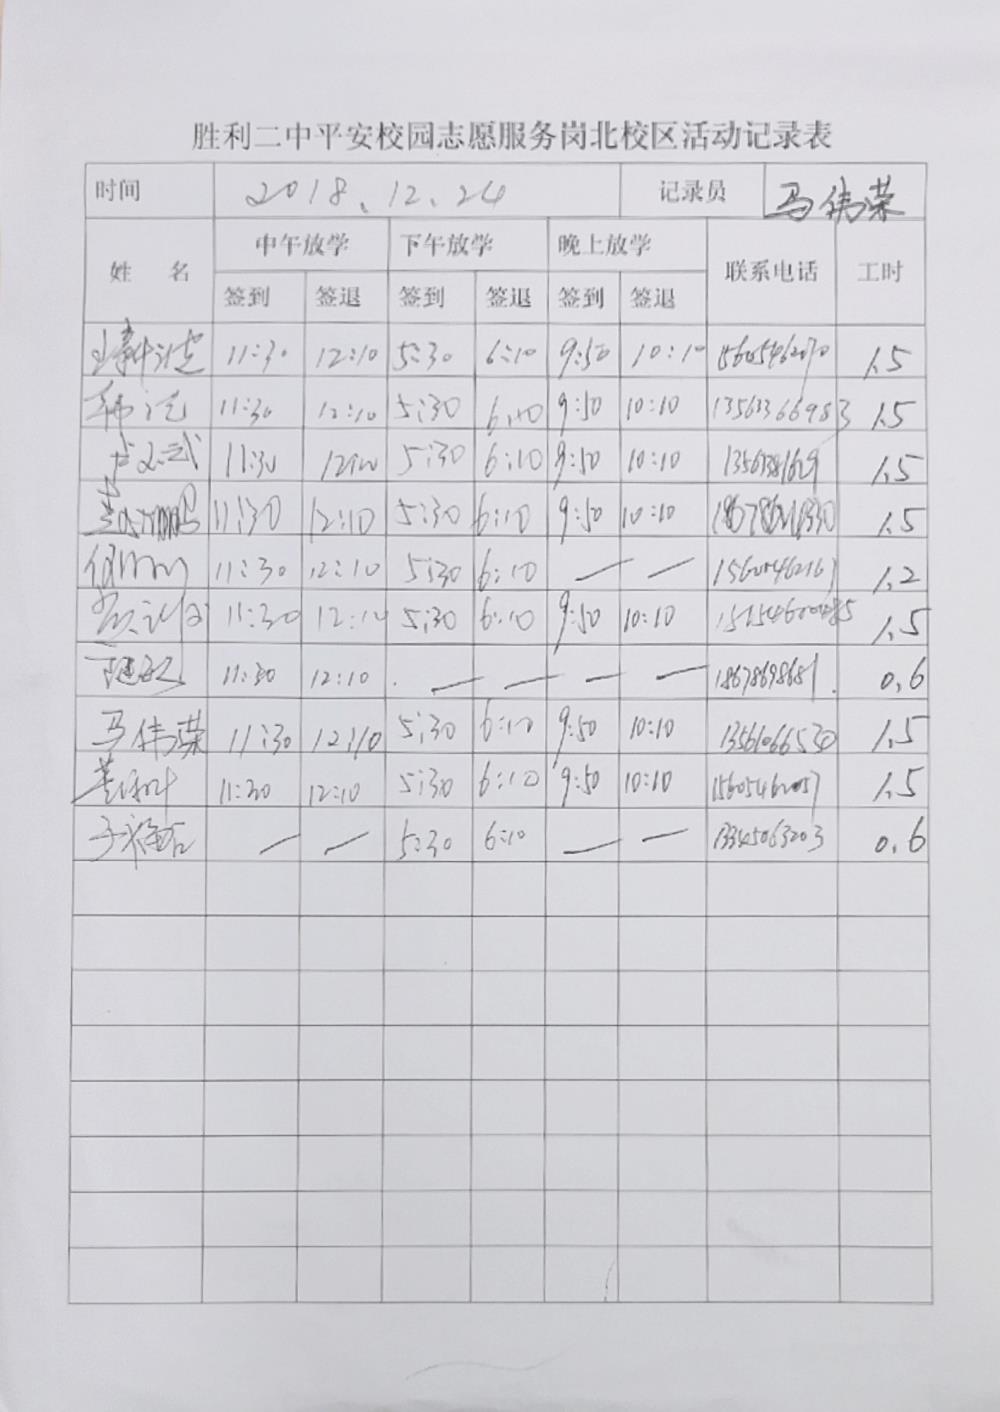 胜利二中平安校园志愿服务岗北校区活动记录表
时间 2018.12.24 记录员 马伟荣
姓 名 中午放学 下午放学 晚上放学 联系电话 工时
签到 签退 签到 签退 签到 签退
11:30 12:10 5:30 6:10 9:50 10:10 1.5
11:30 12:10 5:30 6:10 9:50 10:10 13563366983 1.5
11:30 12:10 5:30 6:10 9:50 10:10 1.5
11:30 12:10 5:30 6:10 9:50 10:10 1.5
11:30 12:10 5:30 6:10 — — 1.2
11:30 12:10 5:30 6:10 9:50 10:10 1.5
11:30 12:10 — — — — 18678698681 0.6
马伟荣 11:30 12:10 5:30 6:10 9:50 10:10 13561066530 1.5
11:30 12:10 5:30 6:10 9:50 10:10 15605462057 1.5
— — 5:30 6:10 — — 13345063203 0.6